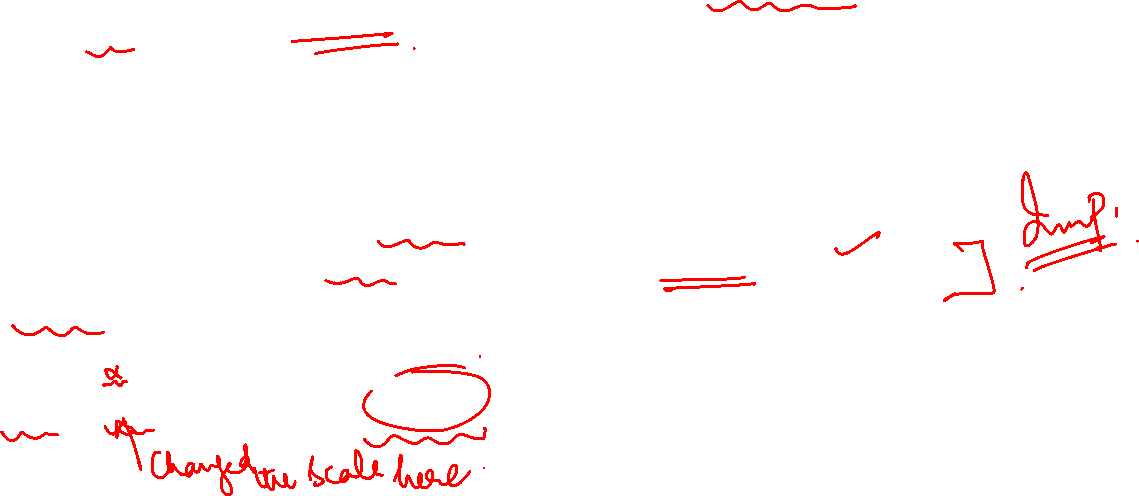 Imp.
α
Changed the scale here